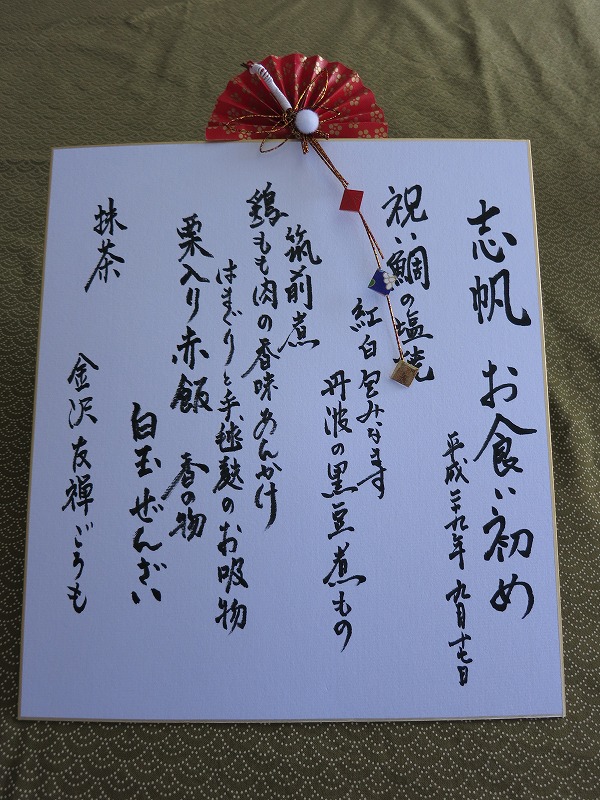 志帆 お食い初め
平成二十九年 九月十七日
祝い鯛の塩焼
紅白包みなます
丹波の黒豆煮もの
筑前煮
鶏もも肉の香味あんかけ
はまぐりと手毬麩のお吸物
栗入り赤飯 香の物
白玉ぜんざい
抹茶 金沢友禅ごうも